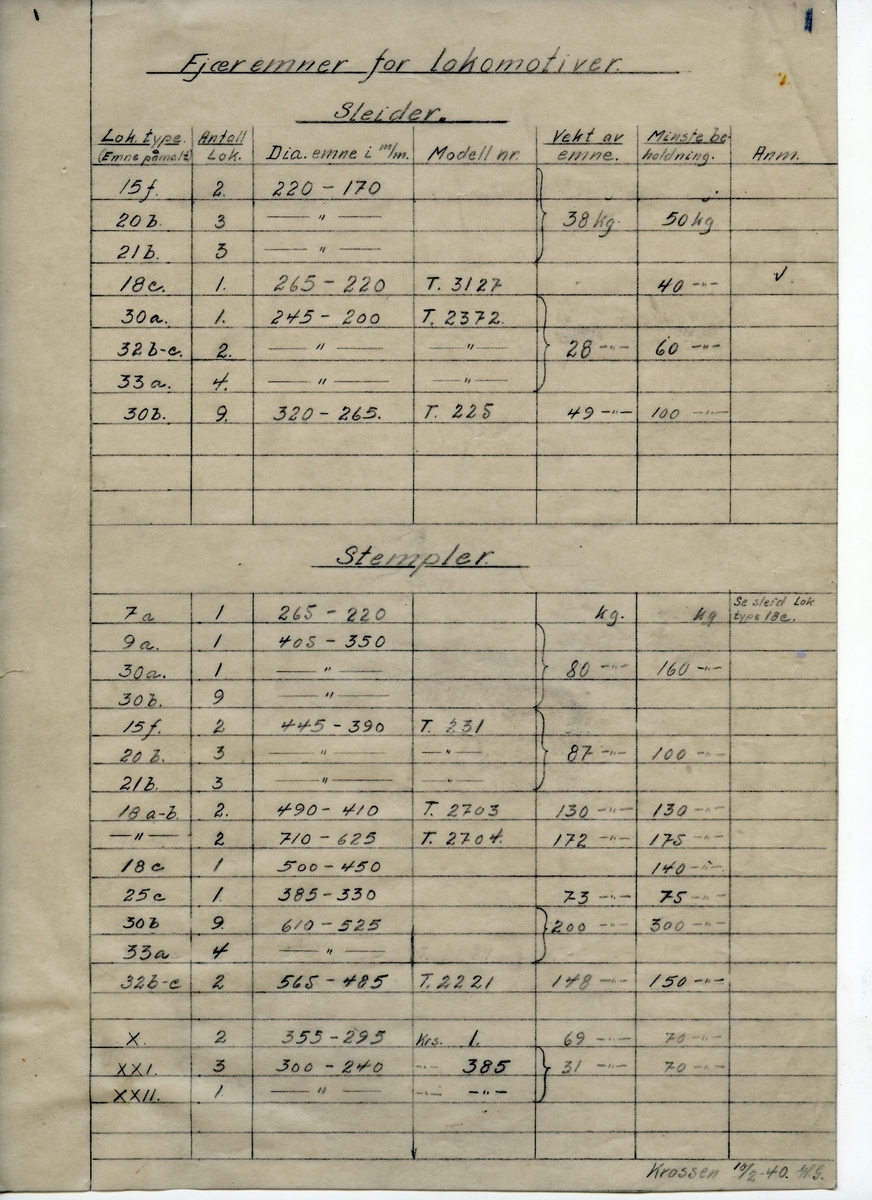 Fjæremner for lokomotiver.
Sleider.
Lok. type. (Emne påmalt) Antall Lok. Dia. emne i m/m. Modell nr. Vekt av emne. Minste beholdning. Anm.
15f. 2. 220 - 170
20b. 3 — " — 38 kg. 50 kg
21b. 3 — " —
18c. 1. 265 - 220 T. 3127 40 -"- V
30a. 1. 245 - 200 T. 2372.
32b-c. 2. — " — — " — 28 -"- 60 -"-
33a. 4. — " — — " —
30b. 9. 320 - 265. T. 225 49 -"- 100 -"-
Stempler.
7a 1 265 - 220 kg. kg Se sleid Lok type 18c.
9a. 1 405 - 350
30a. 1 — " — 80 -"- 160 -"-
30b. 9 — " —
15f. 2 445 - 390 T. 231
20b. 3 — " — -"- 87 -"- 100 -"-
21b. 3 — " — -"-
18a-b. 2. 490 - 410 T. 2703 130 -"- 130 -"-
— " — 2 710 - 625 T. 2704. 172 -"- 175 -"-
18c 1 500 - 450 140 -"-
25c 1. 385 - 330 73 -"- 75 -"-
30b 9. 610 - 525 200 -"- 300 -"-
33a 4 — " —
32b-c 2 565 - 485 T. 2221 148 -"- 150 -"-
X. 2 355 - 295 Krs. 1. 69 -"- 70 -"-
XXI. 3 300 - 240 -"- 385 31 -"- 70 -"-
XXII. 1 — " — -"- -"-
Krossen 10/2-40.